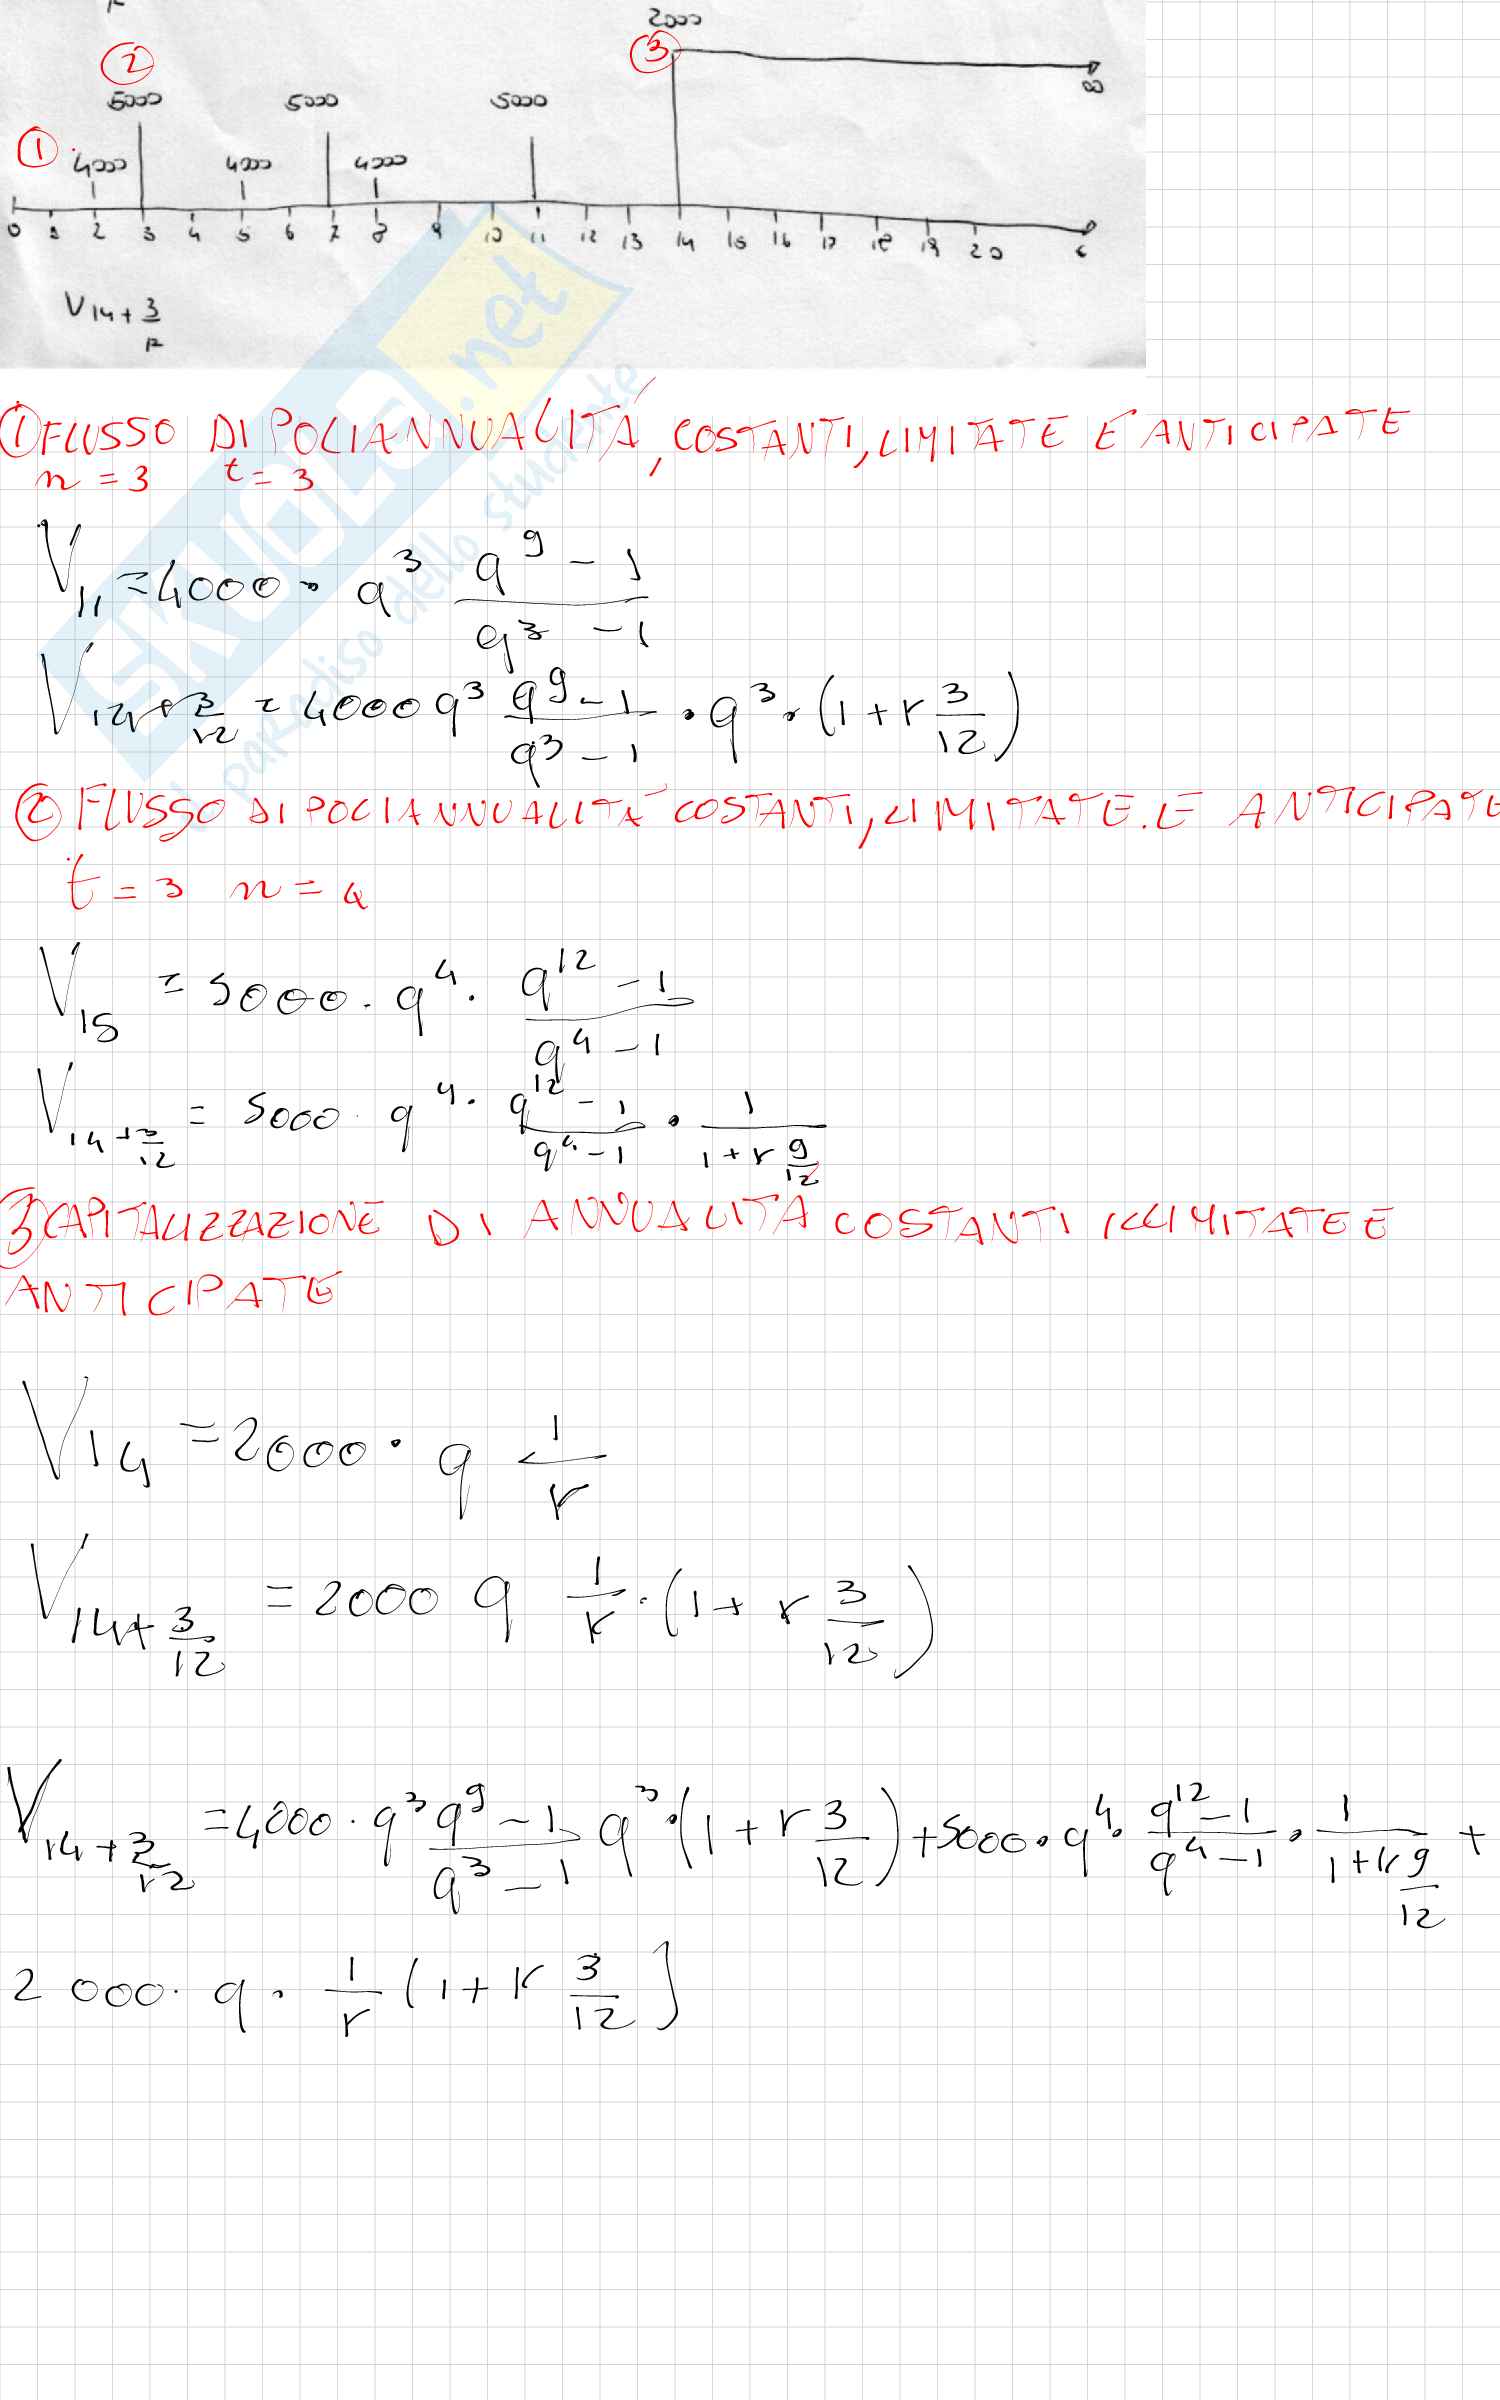 2000
② ③
5000 5000 5000 ∞
① 4000 4000 4000
0 1 2 3 4 5 6 7 8 9 10 11 12 13 14 15 16 17 18 19 20 t
V14+3/12
SKUOLA.net
il paradiso dello studente
① FLUSSO DI POLIANNUALITÁ, COSTANTI, LIMITATE E ANTICIPATE
n = 3 t = 3
V11 = 4000 · q^3 (q^9 - 1)/(q^3 - 1)
V14+3/12 = 4000 q^3 (q^9 - 1)/(q^3 - 1) · q^3 · (1 + r 3/12)
② FLUSSO DI POLIANNUALITÁ COSTANTI, LIMITATE. E ANTICIPATE
t = 3 n = 4
V15 = 5000 · q^4 · (q^12 - 1)/(q^4 - 1)
V14+3/12 = 5000 · q^4 · (q^12 - 1)/(q^4 - 1) · 1/(1 + r 9/12)
③ CAPITALIZZAZIONE DI ANNUALITA COSTANTI ILLIMITATE E
ANTICIPATE
V14 = 2000 · q 1/r
V14+3/12 = 2000 q 1/r · (1 + r 3/12)
V14+3/12 = 4000 · q^3 (q^9 - 1)/(q^3 - 1) q^3 · (1 + r 3/12) + 5000 · q^4 · (q^12 - 1)/(q^4 - 1) · 1/(1 + r 9/12) +
2000 · q · 1/r (1 + r 3/12)